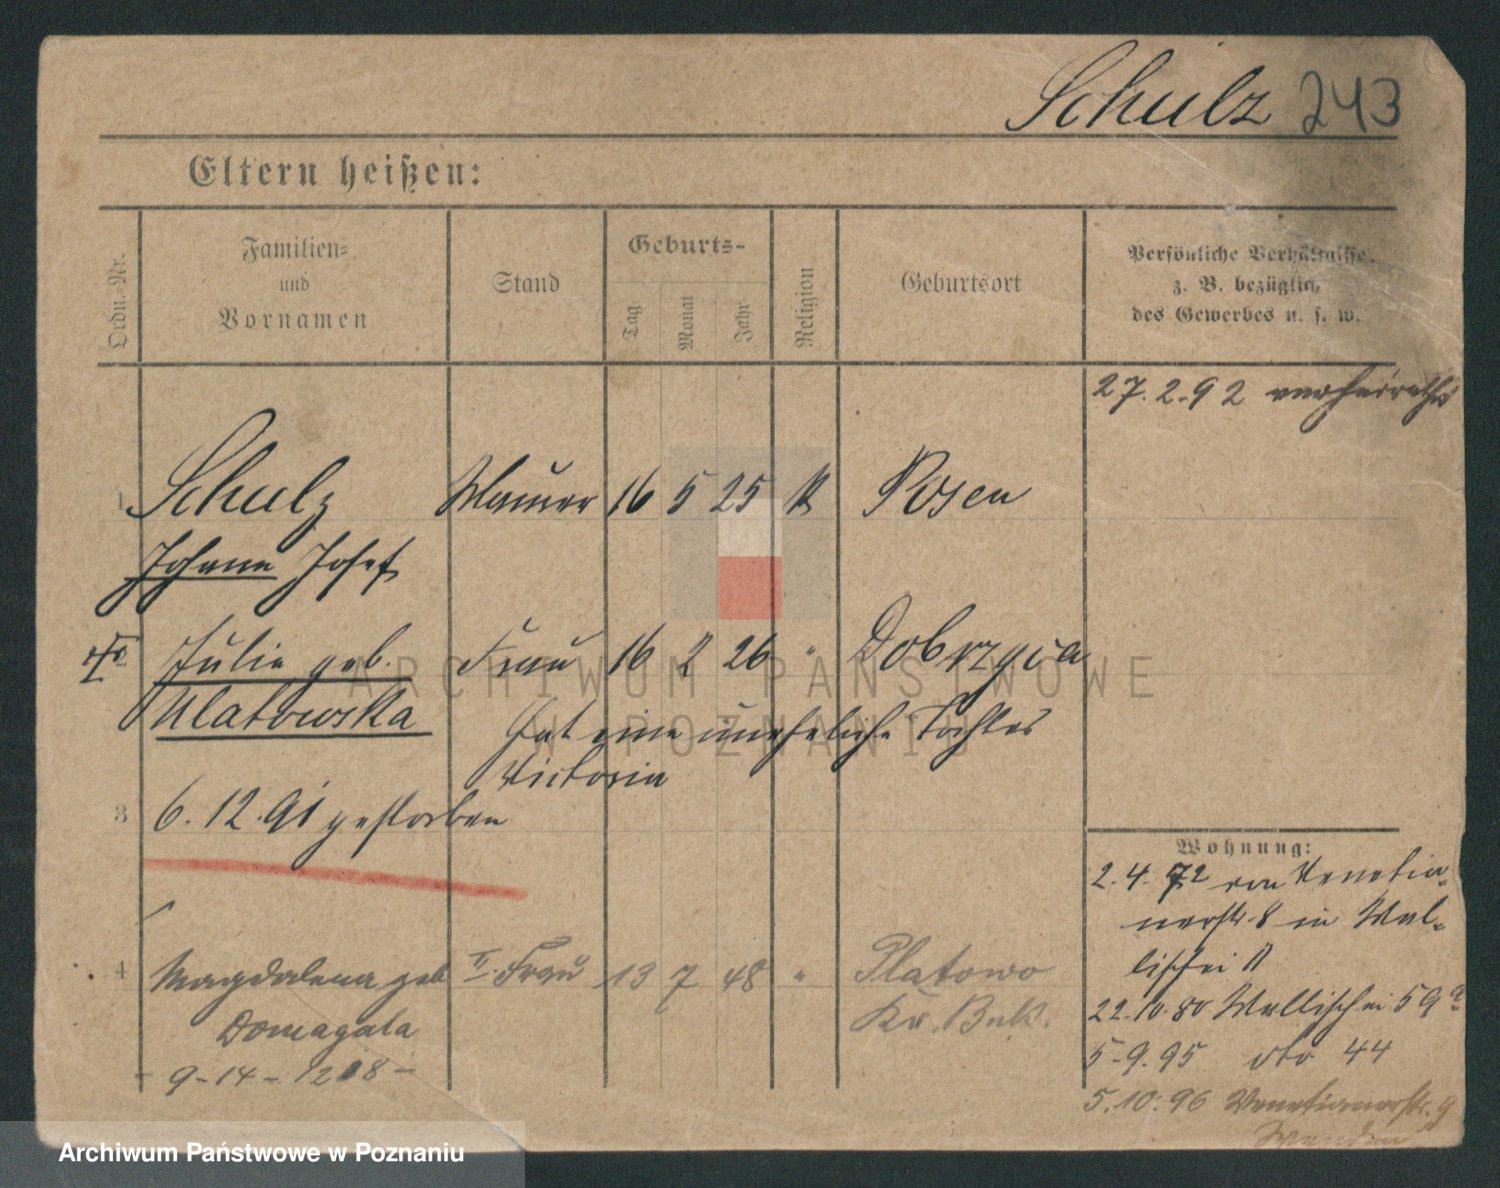 Schulz 243
Eltern heißen:
Ordn.-Nr.
Familien-
und
Vornamen
Stand
Geburts-
Tag
Monat
Jahr
Religion
Geburtsort
Persönliche Verhältnisse,
z. B. bezüglich
des Gewerbes u. s. w.
27.2.92 verheirathet
1 Schulz Maurer 16 5 25 k Posen
Johann Josef
Julie geb. Frau 16 2 26 " Dobrzyca
Ulatowska
hat eine uneheliche Tochter
Victoria
3 6.12.91 gestorben
Wohnung:
2.4.72 von Venetia-
nerstr. 8 in Wal-
lischei 11
4 Magdalena geb II Frau 13 7 48 " Platowo
Domagala Kr. Buk.
22.10.80 Wallischei 59a
- 9-14-1208 -
5.9.95 dto 44
5.10.96 Venetianerstr. 9
ARCHIWUM PAŃSTWOWE
W POZNANIU
Archiwum Państwowe w Poznaniu